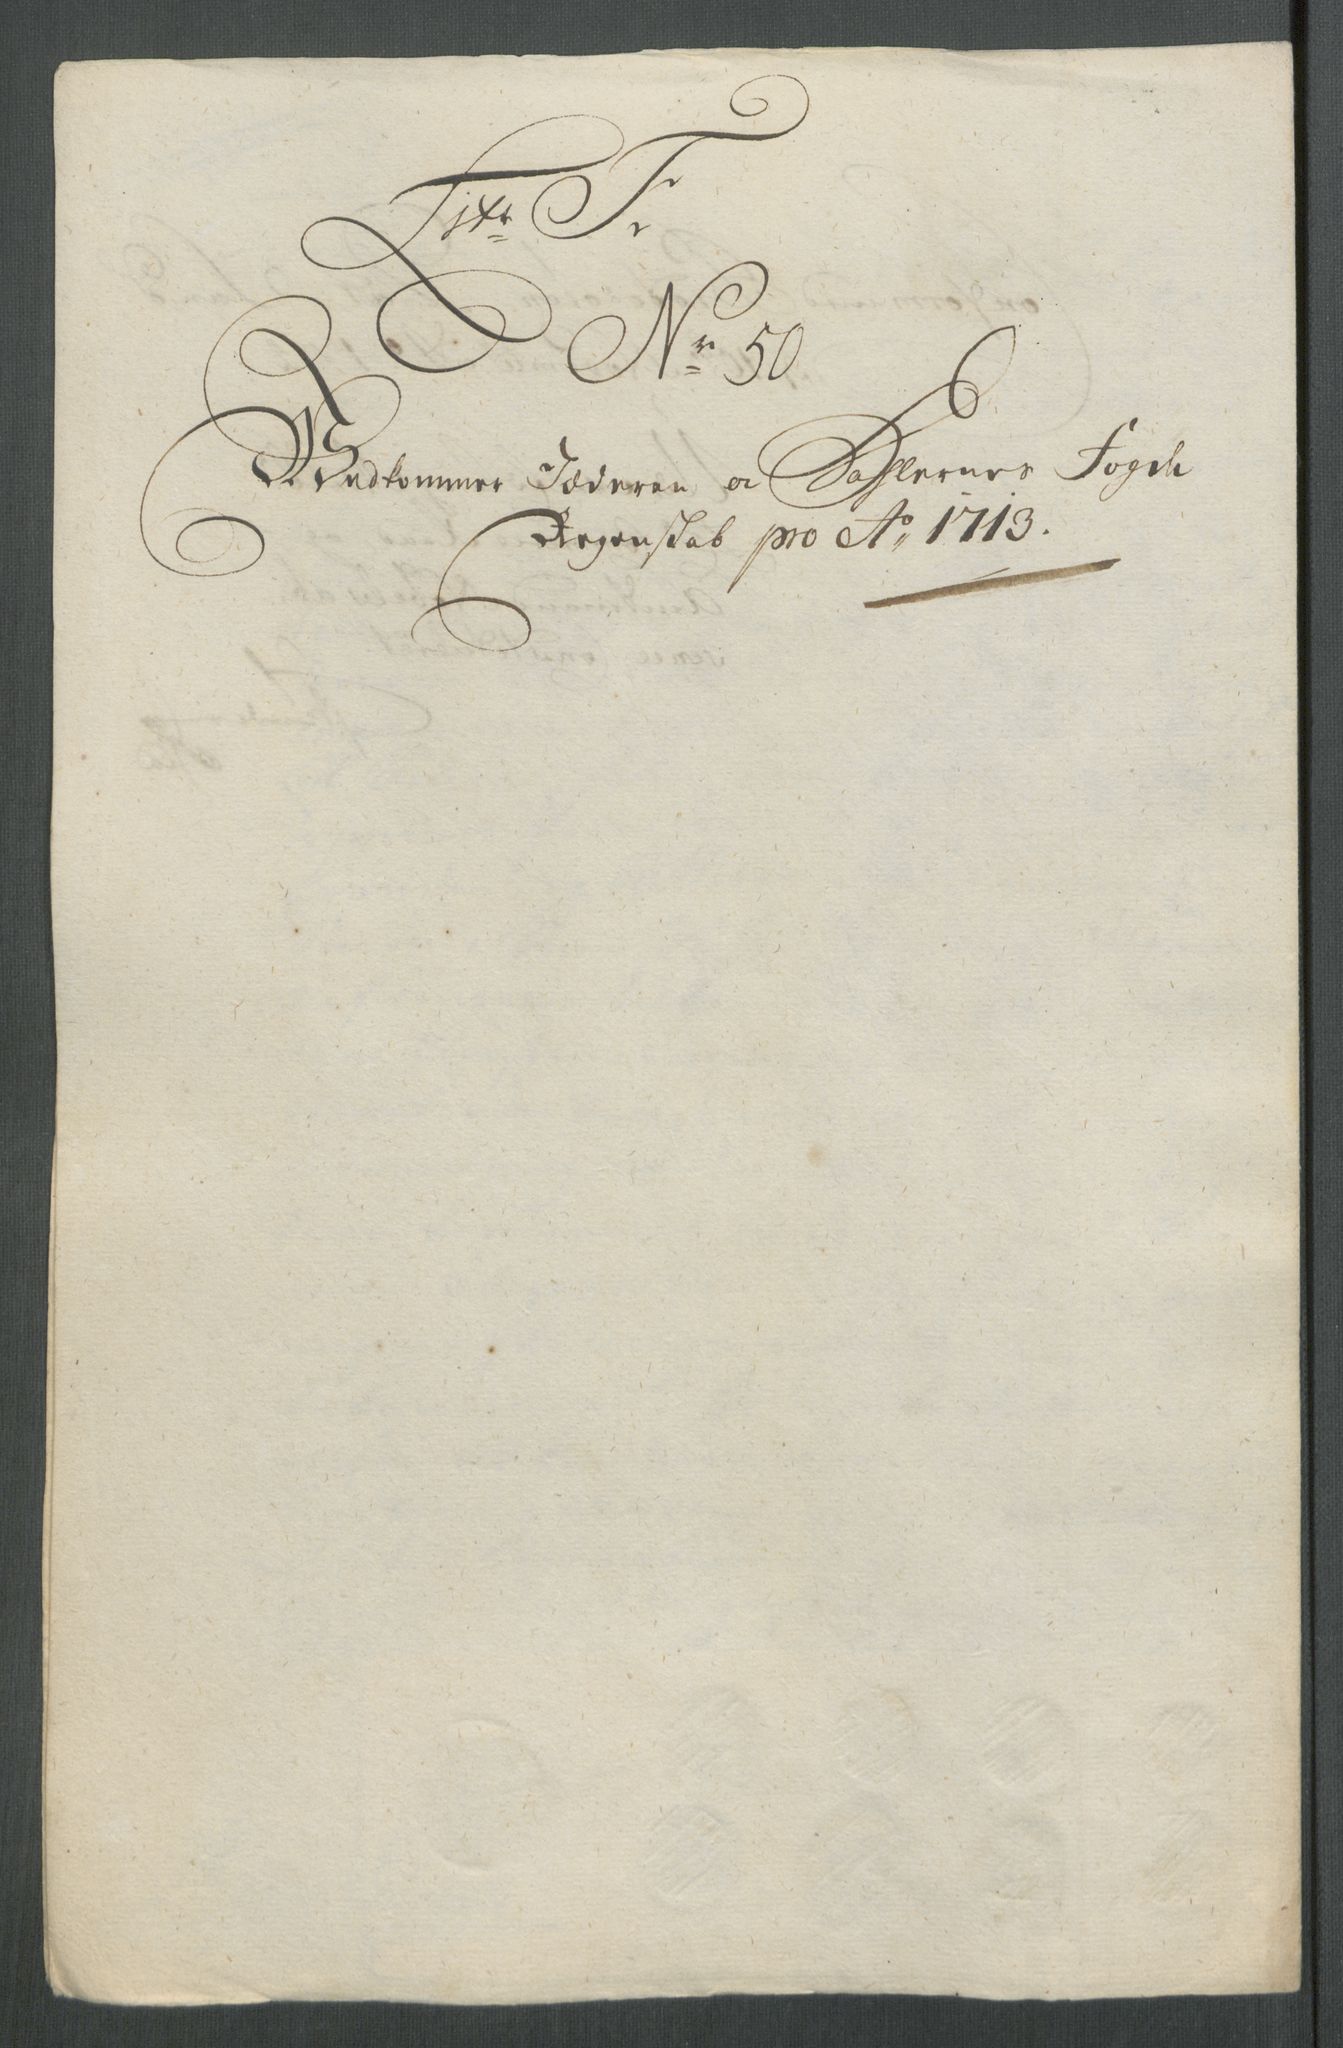 Litr F.
No 50
Vedkommer Jæderen oc Dahlernes Fogde
Regenskab pro Ao 1713.